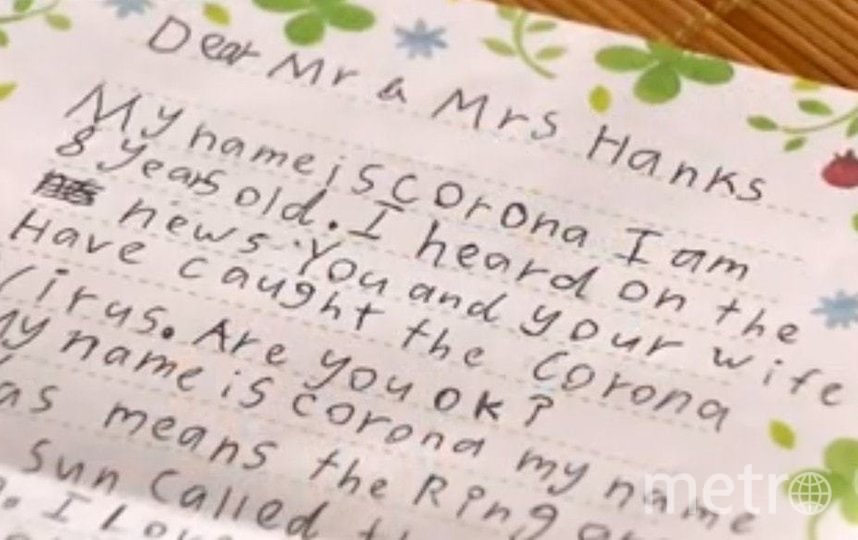 Dear Mr & Mrs Hanks
My name is Corona I am
8 years old. I heard on the
news. You and your wife
Have caught the Corona
Virus. Are you ok?
My name is corona my name
means the Ring
sun called
I Love
metro